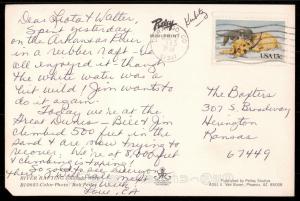 Dear Leota & Walter,
Spent yesterday
on the Arkansas River
in a rubber raft - we
all enjoyed it - though
the white water was a
bit wild! Jim wants to
do it again -
Today we're at the
Great Dunes - Bill & Jim
climbed 500 feet in the
sand & are now trying to
recover. We're at 8,000 feet
& climbing is tiring!
So good to see everyone
week
Love,
Petley
USA 13c
The Bapters
307 S. Broadway
Herington
Kansas
67449
RIVER RAFTING
Color Photo / Bob Petley
Published by Petley Studios
Phoenix, AZ